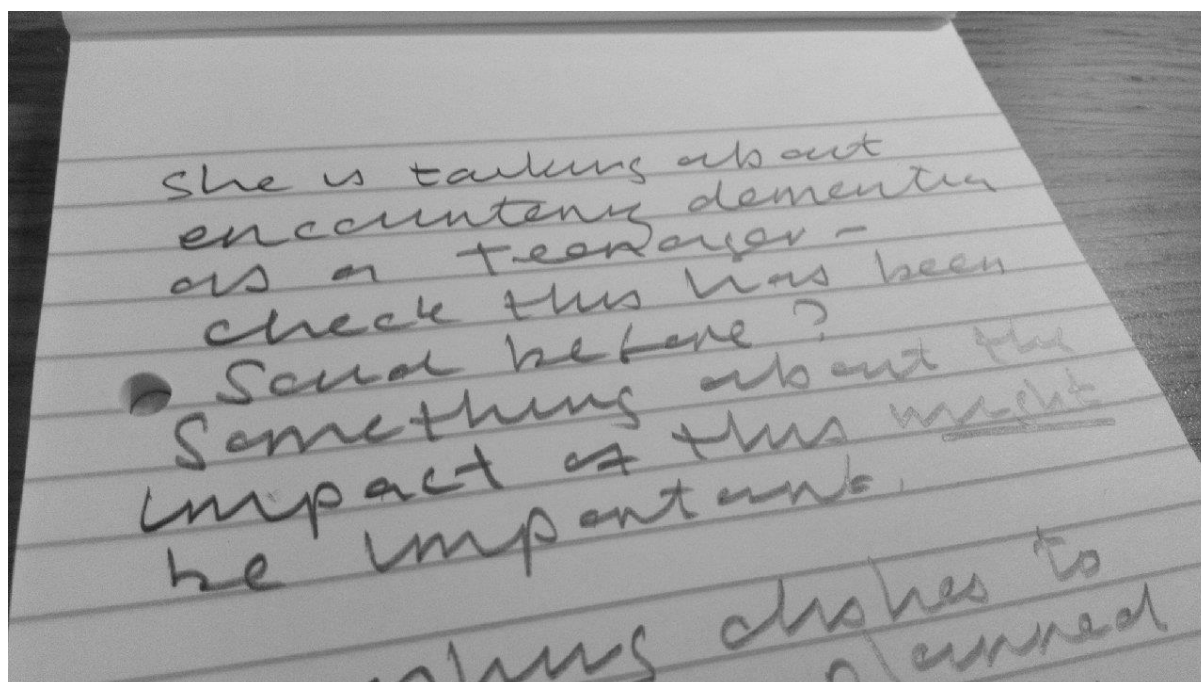 She is talking about
encountering dementia
as a teenager -
check this has been
said before?
Something about the
impact of this might
be important.
dishes to
planned